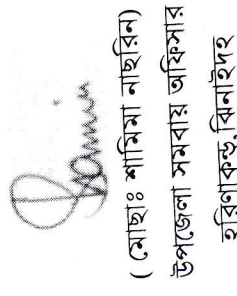 ( মোছাঃ শামিমা নাছরিন)
উপজেলা সমবায় অফিসার
হরিণাকুন্ডু,ঝিনাইদহ